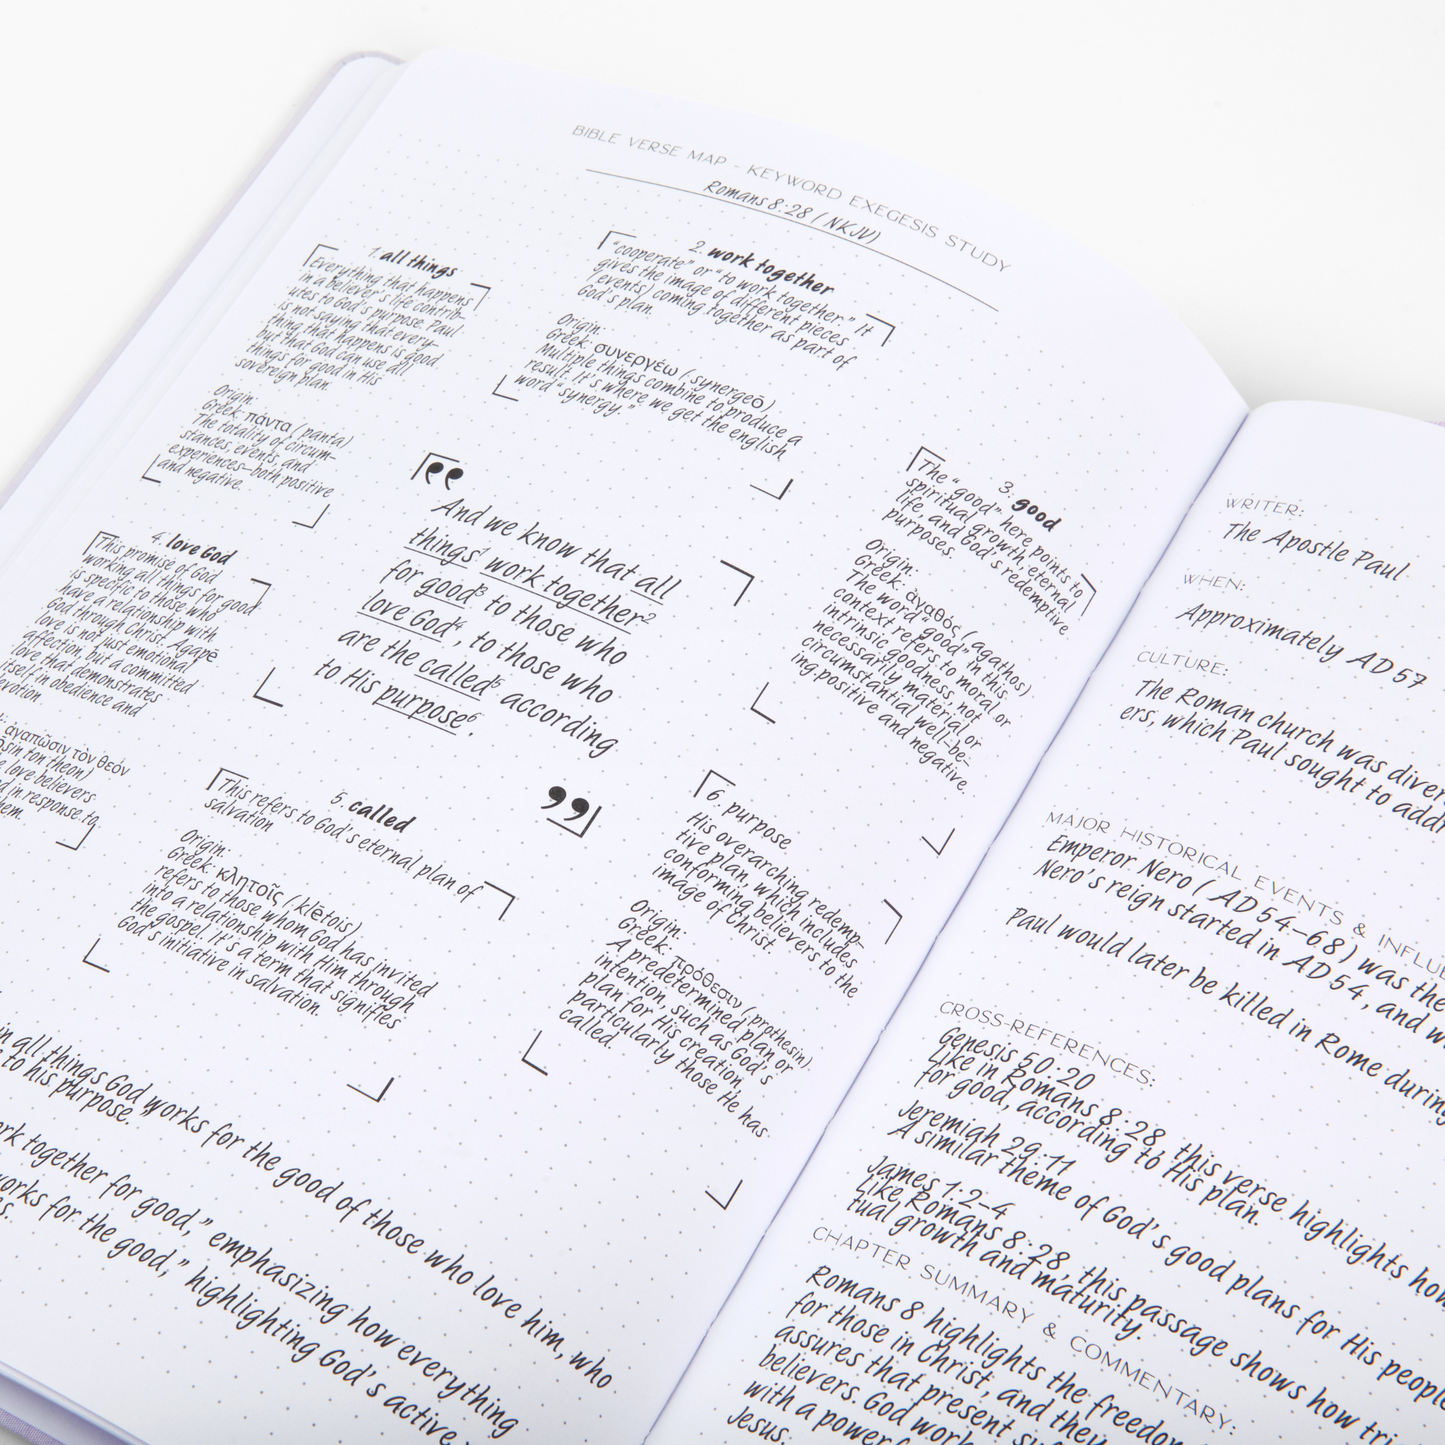 BIBLE VERSE MAP - KEYWORD EXEGESIS STUDY
Romans 8:28 (NKJV)
1. all things
Everything that happens
in a Believer's life contrib-
utes to God's purpose. Paul
is not saying that every-
thing that happens is good
but that God can use all
things for good in His
sovereign plan.
Origin:
Greek: πάντα (panta)
The totality of circum-
stances, events, and
experiences–both positive
and negative.
2. work together
"cooperate" or "to work together." It
gives the image of different pieces
(events) coming together as part of
God's plan.
Origin:
Greek: συνεργέω (synergeō)
Multiple things combine to produce a
result. It's where we get the english
word "synergy."
3. good
The "good" here points to
spiritual growth, eternal
life, and God's redemptive
purposes.
Origin:
Greek: ἀγαθός (agathos)
The word "good" in this
context refers to moral or
intrinsic goodness, not
necessarily material or
circumstantial well-be-
ing.positive and negative.
“
And we know that all
things¹ work together²
for good³ to those who
love God⁴, to those who
are the called⁵ according
to His purpose⁶.
”
4. love God
This promise of God
working all things for good
is specific to those who
have a relationship with
God through Christ. Agapē
love is not just emotional
affection, but a committed
love that demonstrates
itself in obedience and
ἀγαπῶσιν τὸν θεόν
sin ton theon)
love believers
in response to
them.
5. called
This refers to God's eternal plan of
salvation
Origin:
Greek: κλητοῖς (klētois)
refers to those whom God has invited
into a relationship with Him through
the gospel. It's a term that signifies
God's initiative in salvation.
6. purpose
His overarching redemp-
tive plan, which includes
conforming believers to the
image of Christ.
Origin:
Greek: πρόθεσιν (prothesin)
A predetermined plan or
intention, such as God's
plan for His creation,
particularly those He has
called.
in all things God works for the good of those who love him, who
to his purpose."
work together for good," emphasizing how everything
works for the good," highlighting God's active
WRITER:
The Apostle Paul
WHEN:
Approximately AD 57
CULTURE:
The Roman church was diver
ers, which Paul sought to addr
MAJOR HISTORICAL EVENTS & INFLUE
Emperor Nero (AD 54–68) was the
Nero's reign started in AD 54, and w
Paul would later be killed in Rome during
CROSS-REFERENCES:
Genesis 50:20
Like in Romans 8:28, this verse highlights how
for good, according to His plan.
Jeremiah 29:11
A similar theme of God's good plans for His people
James 1:2–4
Like Romans 8:28, this passage shows how tri
tual growth and maturity.
CHAPTER SUMMARY & COMMENTARY:
Romans 8 highlights the freedo
for those in Christ, and they
assures that present su
believers. God work
with a powerf
Jesus.